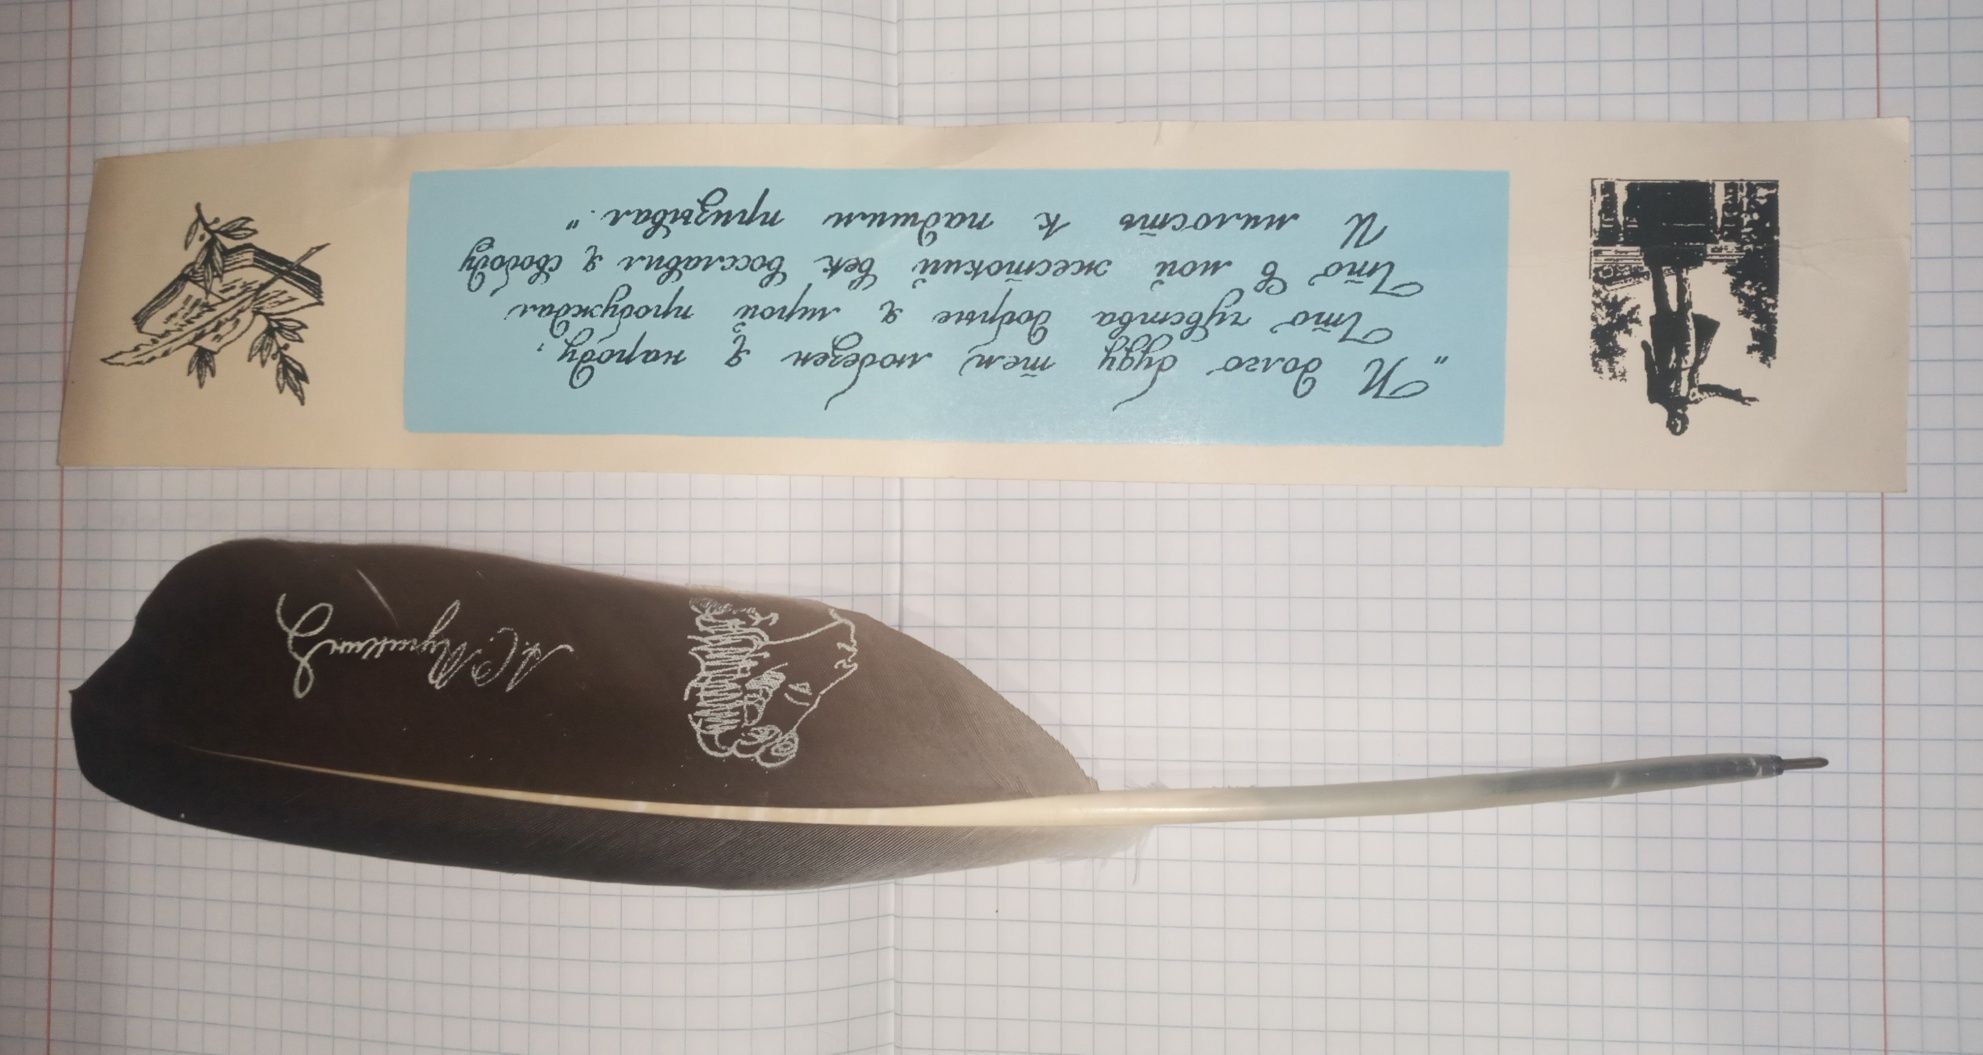 „И долго буду тем любезен я народу,
Что чувства добрые я лирой пробуждал
Что в мой жестокий век восславил я свободу
И милость к падшим призывал."
А.С. Пушкин